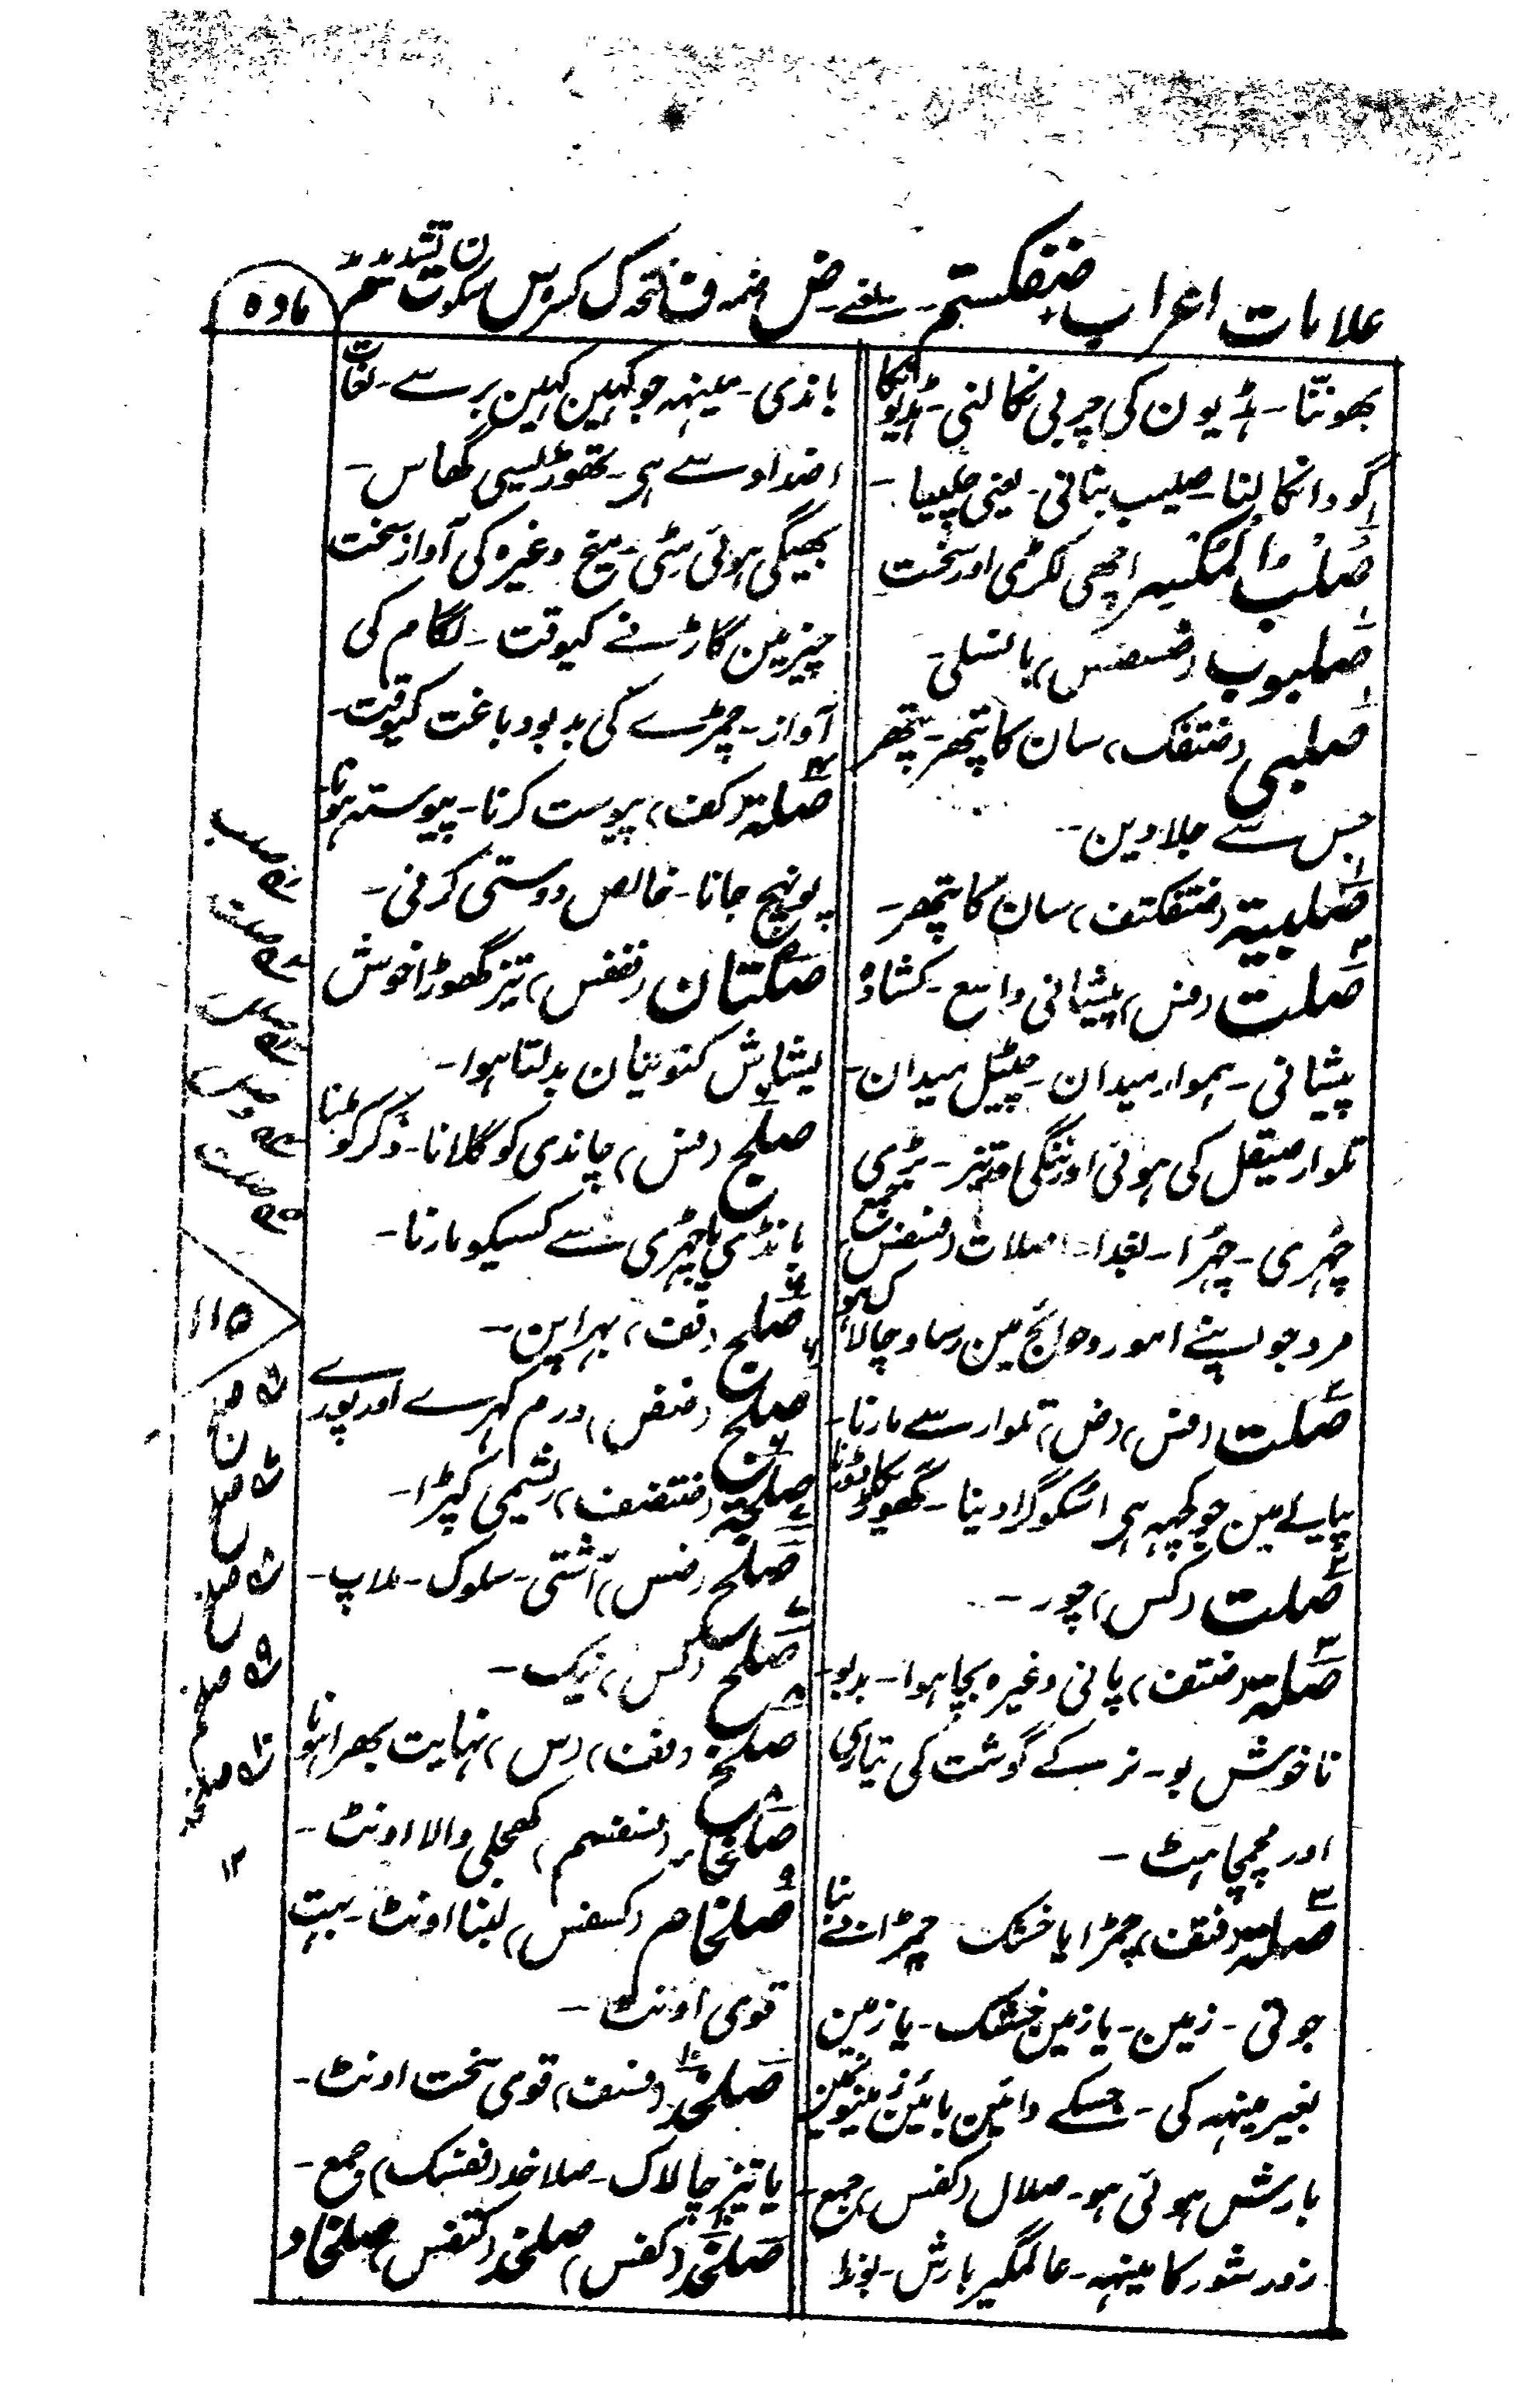 علامات اعراب ضفکستم - یعنے ض ضمہ ف فتحہ ک کسرہ س سکون ت تشدید م
مادہ
بھوننّا - ہڈیون کی چربی نکالنی - ہڈیونکا
گودا نکالنا - صلیب بنانی - یعنی چلیپا -
صلب اچھی لکڑی اور سخت
صلبوب (ضسضس) بانسلی -
صلبی (ضتفک) سان کا پتھر - پتھر
جس سے جلا دین -
صلبیة (ضتفکتف) سان کا پتھر -
صلت (فس) پیشانی واسع - کشادہ
پیشانی - ہموار میدان - چٹیل میدان -
تلوار صیقل کی ہوئی اور ننگی اور تیز - بڑی
چہری - چہرا - بغدا - اصلات (فسفس) جمع
مرد جو اپنے امور و حوائج مین رسا و چالاک ہو
صلت (فس) (ضس) تلوار سے مارنا -
پیالے مین جو کچہہ ہی اسکو گرا دینا - گھوڑیکا دوڑنا
صلت (کس) چور -
صلة (ضتف) پانی وغیرہ بچا ہوا - بدبو -
ناخوش بو - تر سکے گوشت کی تیاری
اور چمچاہٹ -
صلة (فتف) چمڑا یا خشک چمڑا بے بنا
جوتی - زمین - یا زمین خشک - یا زمین
بغیر مینہہ کی - جسکے دائین بائین زمینونمین
بارش ہوئی ہو - صلال (کفس) جمع -
زور شور کا مینہہ - عالمگیر بارش - بوند
باندی - مینہہ جو کہین کہین برسے - لغات
اضداد سے ہی - تھوڑیسی گھاس -
بھیگی ہوئی مٹی - میخ وغیرہ کی آواز سخت
چیز مین گاڑنے کیوقت - لگام کی
آواز - چمڑے کی بدبو دباغت کیوقت -
صلة (کف) پیوست کرنا - پیوستہ ہونا
پونہچ جانا - خالص دوستی کرنی -
صلتان (ففس) تیز گھوڑا خوش
بشاش کنوتیان بدلتا ہوا -
صلج (فس) چاندی کو گلانا - ذکر کو ملنا
ہانڈی یا چہڑی سے کسیکو مارنا -
صلج (فف) بہراپن -
صلج (ضفس) درم کہرے اور پورے
صلجة (ضتضف) ریشمی کپڑا -
صلح (ضس) آشتی - سلوک - ملاپ -
صلح (کس) نیک -
صلخ (فف) (س) نہایت بھرا ہونا
کھجلی والا اونٹ -
صلخام (کسفس) لبنا اونٹ - بہت
قوی اونٹ -
صلخد (فسف) قوی سخت اونٹ -
یا تیز چالاک - صلاخد (ففسک) جمع -
صلخد (کفس) صلخد (کتفس) صلخاد
صلب
صلت
صلت
صلت
صلت
۱۱۵
صلج
صلح
صلخ
صلخم
صلخد
۱۲